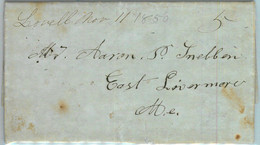 Lowell Nov 11 185 5
Mr. Aaron P. Snelben
East Livermore
Me.